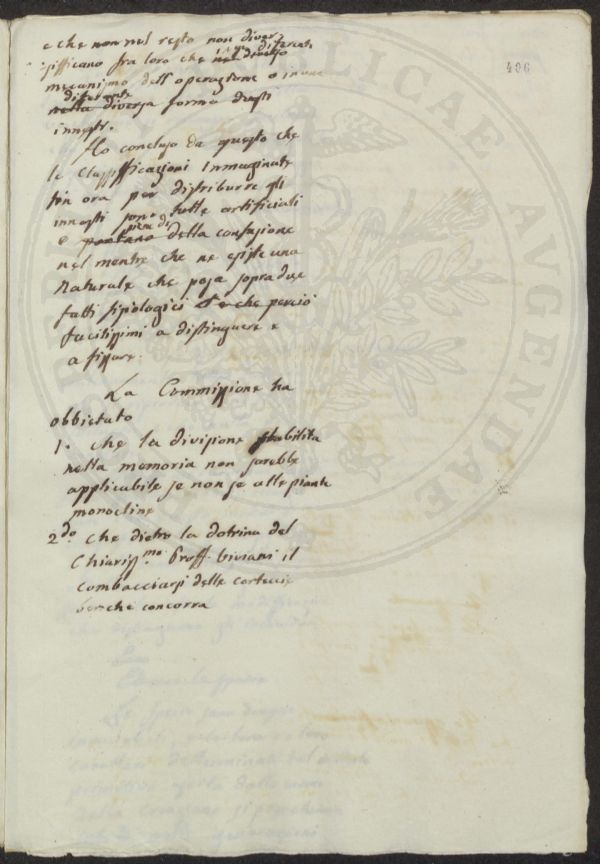 e che non nel resto non diver-
sifficano fra loro che nel diverso
in un diferente
mecanismo dell'operazione o in una
diferente
nella diversa forma degli
innesti.
Ho concluso da questo che
le Classifficazioni immaginate
fin ora per distribuire gli
innesti sono tutte artificiali
piene di
e portano della confusione
nel mentre che ne esiste una
Naturale che posa sopra due
fatti fisiologici e che perciò
facilissimi a distinguere e
a fissare.
La Commissione ha
obbiettato
1. che la divisione stabilita
nella memoria non sarebbe
applicabile se non se alle piante
monocline
2do che dietro la dotrina del
Chiariss.mo Proff. Viviani il
combacciarsi delle corteccie
benche concorra
406
PUBLICAE
AUGENDAE